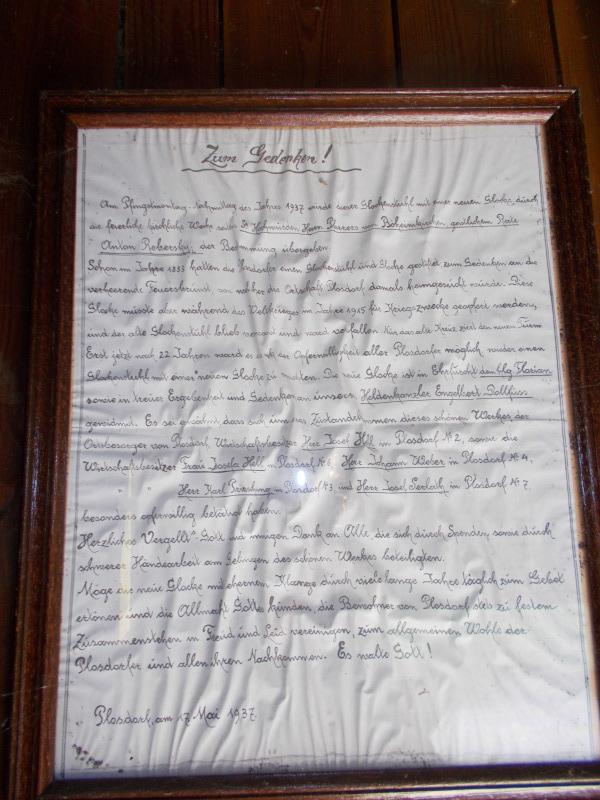 Zum Gedenken!
Am Pfingstmontag-Nachmittag des Jahres 1937 wurde dieser Glockenstuhl mit einer neuen Glocke, durch
die feierliche kirchliche Weihe seiner Hochwürden Herrn Pfarrers von Böheimkirchen geistlichem Rate
Anton Robersky, der Bestimmung übergeben.
Schon im Jahre 1883 hatten die Vordorfer einen Glockenstuhl und Glocke gestiftet zum Gedenken an die
verheerende Feuersbrunst, von welcher die Ortschaft Plosdorf damals heimgesucht wurde. Diese
Glocke müsste aber während des Weltkrieges im Jahre 1915 für Kriegszwecke geopfert werden,
und der alte Glockenstuhl blieb und ward verfallen. Nur das alte Kreuz ziert den neuen Turm.
Erst jetzt nach 22 Jahren ward es dank der Opferwilligkeit aller Plosdorfer möglich, wieder einen
Glockenstuhl mit einer neuen Glocke zu. Die neue Glocke ist in Ehrfurcht den hlg. Florian
sowie in treuer Ergebenheit und Gedenken an unsern Heldenkanzler Engelbert Dollfuss
gewidmet. Es sei erwähnt, dass sich um das Zustandekommen dieses schönen Werkes der
Ortsbesorger von Plosdorf, Wirtschaftsbesitzer Herr Josef Höll in Plosdorf № 2, sowie die
Wirtschaftsbesitzer Frau Josefa Höll in Plosdorf № 6, Herr Johann Weber in Plosdorf № 4,
Herr Karl in Plosdorf № 3, und Herr Josef in Plosdorf № 7,
besonders opferwillig betätigt haben.
Herzliches „Vergelt's Gott und innigen Dank an Alle, die sich durch Spenden, sowie durch
schwerer Handearbeit am Gelingen des schönen Werkes beteiligten.
Möge die neue Glocke mit ehernem Klange durch viele lange Jahre täglich zum Gebet
ertönen und die Allmacht Gottes künden, die Bewohner von Plosdorf stets zu festem
Zusammenstehen in Freud und Leid vereinigen, zum allgemeinen Wohle der
Plosdorfer und allen ihren Nachkommen. Es walte Gott!
Plosdorf, am 17. Mai 1937.